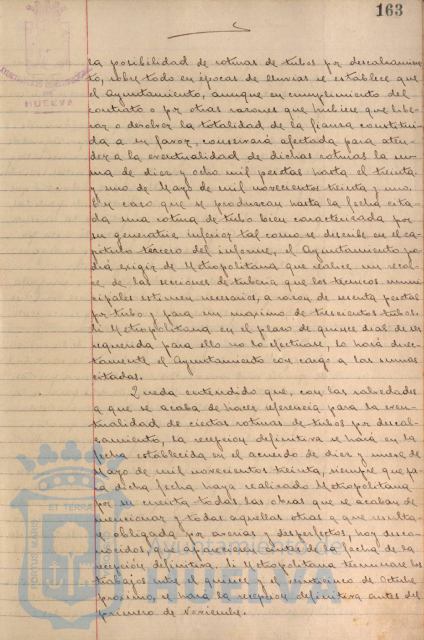 163
AYUNTAMIENTO
DE
HUELVA
la posibilidad de roturas de tubos por descalzamien-
to, sobre todo en épocas de lluvias se establece que
el Ayuntamiento, aunque en cumplimiento del
contrato o por otras razones que hubiese que libe-
rar o devolver la totalidad de la fianza constitui-
da a su favor, conservará afectada para aten-
der a la eventualidad de dichas roturas la su-
ma de diez y ocho mil pesetas hasta el treinta
y uno de Mayo de mil novecientos treinta y uno.
En caso que se produzcan hasta la fecha cita-
da una rotura de tubo bien caracterizada por
su generatriz inferior tal como se describe en el ca-
pítulo tercero del informe, el Ayuntamiento po-
drá exigir de Metropolitana que realice un recal-
ce de las secciones de tubería que los técnicos muni-
cipales estimen necesarios, a razon de sesenta pesetas
por tubo y para un maximo de trescientos tubos.
Si Metropolitana en el plazo de quince dias de ser
requerida para ello no lo efectuase, lo hará direc-
tamente el Ayuntamiento con cargo a las sumas
citadas.
Queda entendido que, con las salvedades
a que se acaba de hacer referencia para la even-
tualidad de ciertas roturas de tubos por descal-
zamiento, la recepcion definitiva se hará en la
fecha establecida en el acuerdo de diez y nueve de
Mayo de mil novecientos treinta, siempre que pa-
ra dicha fecha haya realizado Metropolitana
por su cuenta todas las obras que se acaban de
mencionar y todas aquellas otras a que resulta-
se obligada por averias y desperfectos, hoy desco-
nocidos que aparecieran antes de la fecha de la
recepcion definitiva. Si Metropolitana terminase los
trabajos entre el quince y el veinticinco de Octubre
proximo, se hará la recepcion definitiva antes del
primero de Noviembre.
PORTUS MARIS
ET TERRAE
Ayuntamiento de
HUELVA